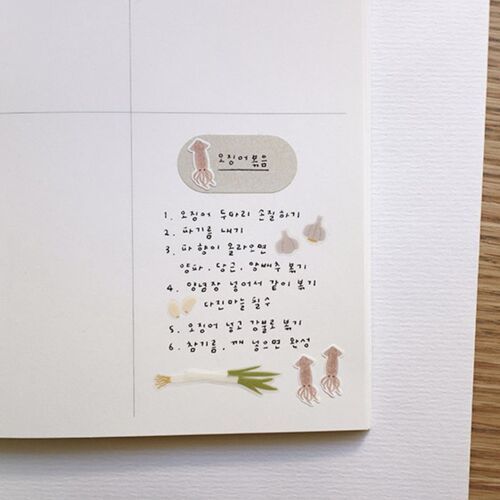 오징어볶음
1. 오징어 두마리 손질하기
2. 파기름 내기
3. 파 향이 올라오면
양파, 당근, 양배추 볶기
4. 양념장 넣어서 같이 볶기
다진마늘 필수
5. 오징어 넣고 강불로 볶기
6. 참기름, 깨 넣으면 완성